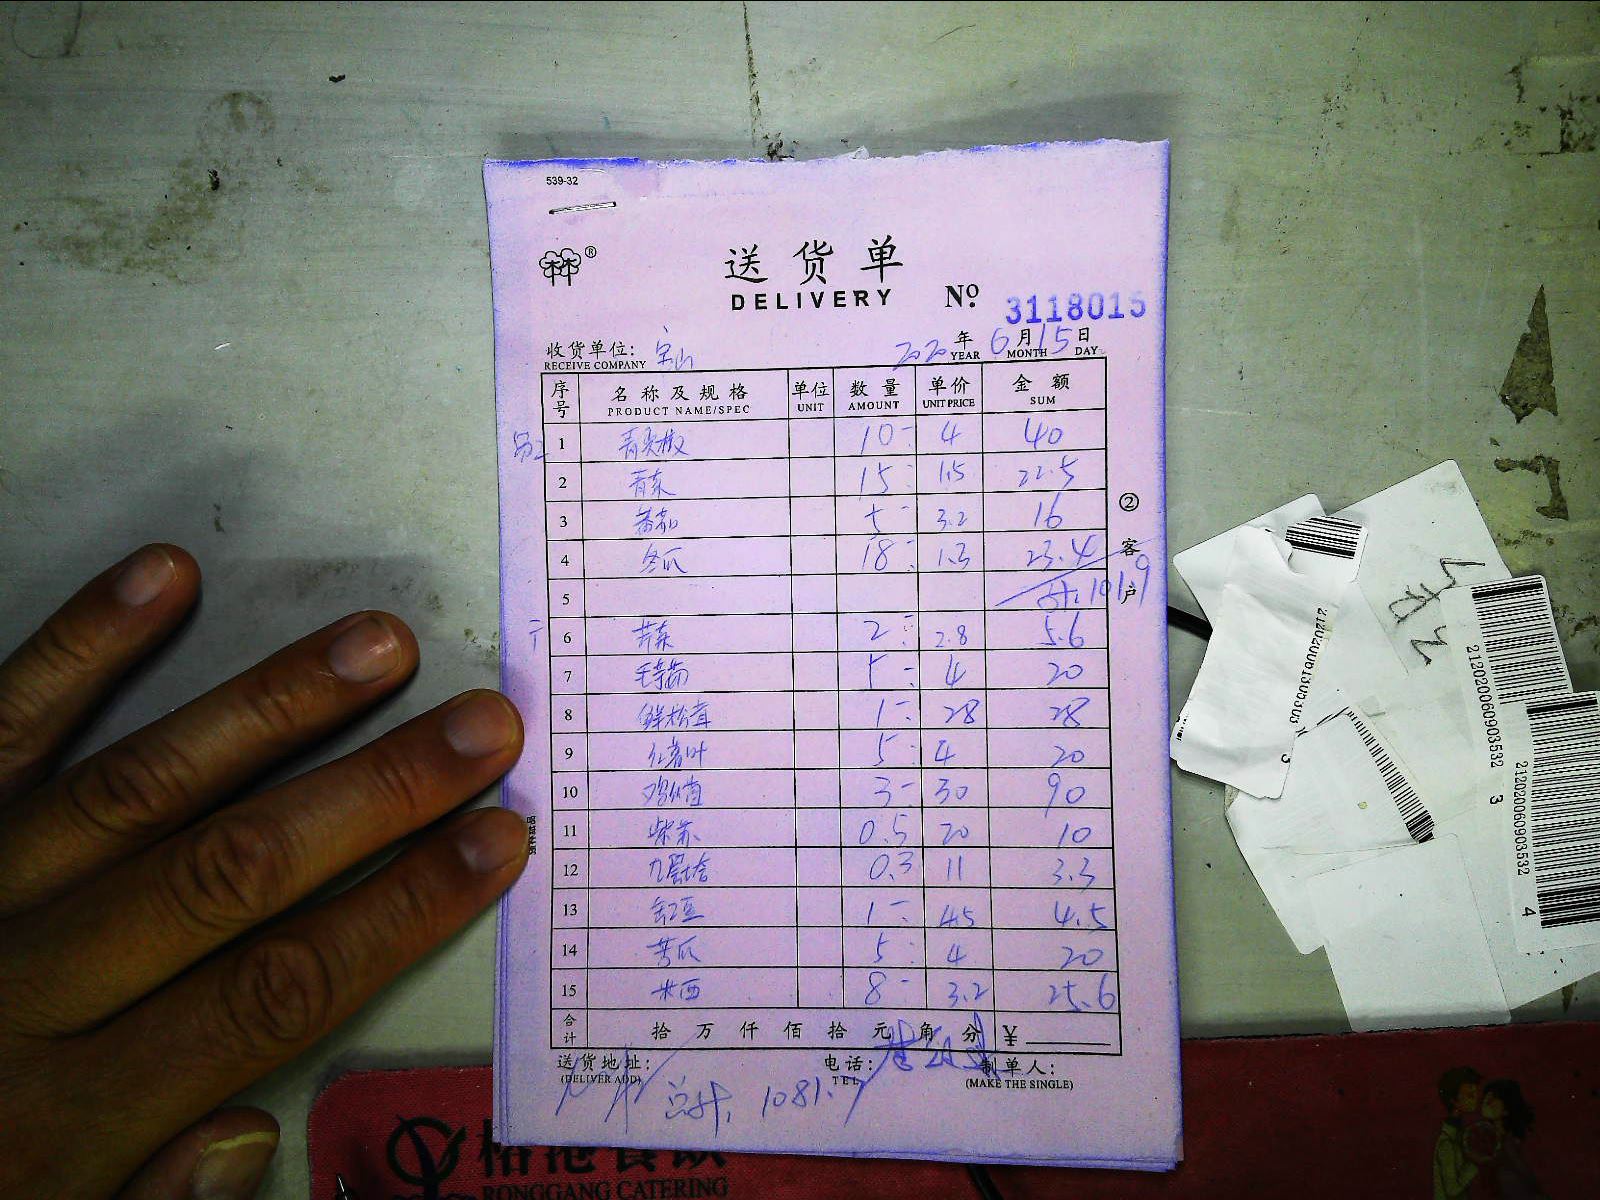 539-32
送货单
DELIVERY
No 3118015
收货单位: 宝山 2020 年 6 月 15 日
RECEIVE COMPANY YEAR MONTH DAY
序号 名称及规格 单位 数量 单价 金额
PRODUCT NAME/SPEC UNIT AMOUNT UNIT PRICE SUM
1 青尖椒 10 4 40
2 青东 15 1.5 22.5
3 番茄 5 3.2 16
4 冬瓜 18 1.3 23.4
5 计: 101.9
6 芹东 2 2.8 5.6
7 毛芋艿 5 4 20
8 鲜松茸 1 28 28
9 红薯叶 5 4 20
10 鸡丛菌 3 30 90
11 紫苏 0.5 20 10
12 九层塔 0.3 11 3.3
13 豇豆 1 4.5 4.5
14 苦瓜 5 4 20
15 米西 8 3.2 25.6
合计 拾 万 仟 佰 拾 元 角 分 ¥
② 客户
送货地址: 电话: 制单人:
(DELIVER ADD) TEL (MAKE THE SINGLE)
总计: 1081.7
RONGGANG CATERING
212020060903532 3
212020060903532 4